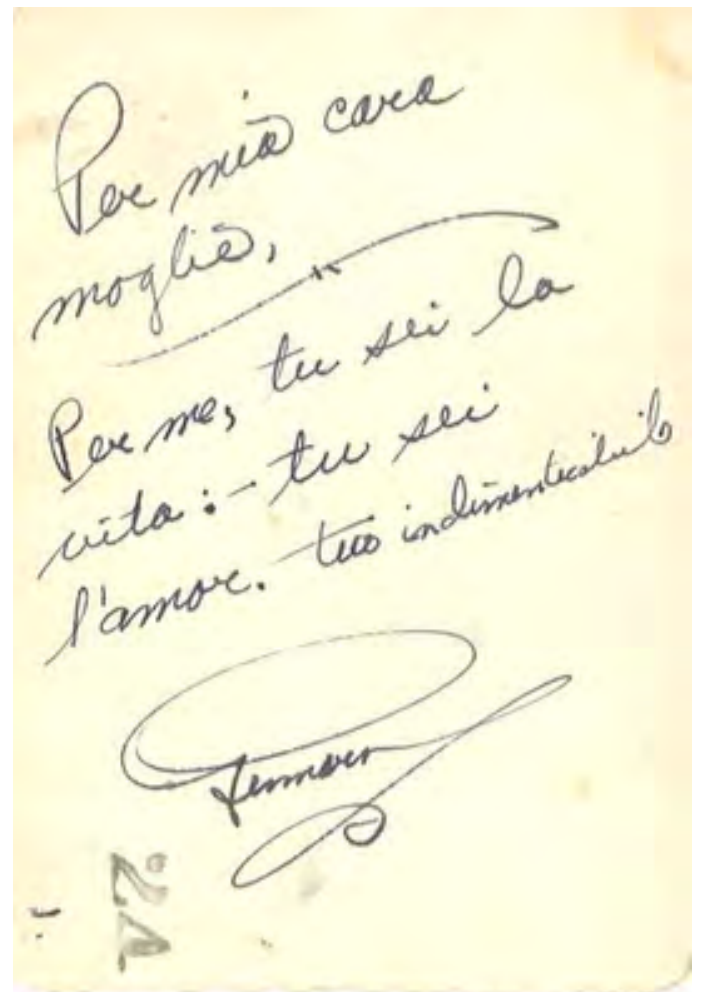 Per mia cara
moglie,
Per me, tu sei la
vita :- tu sei
l'amor. tuo indimenticabile